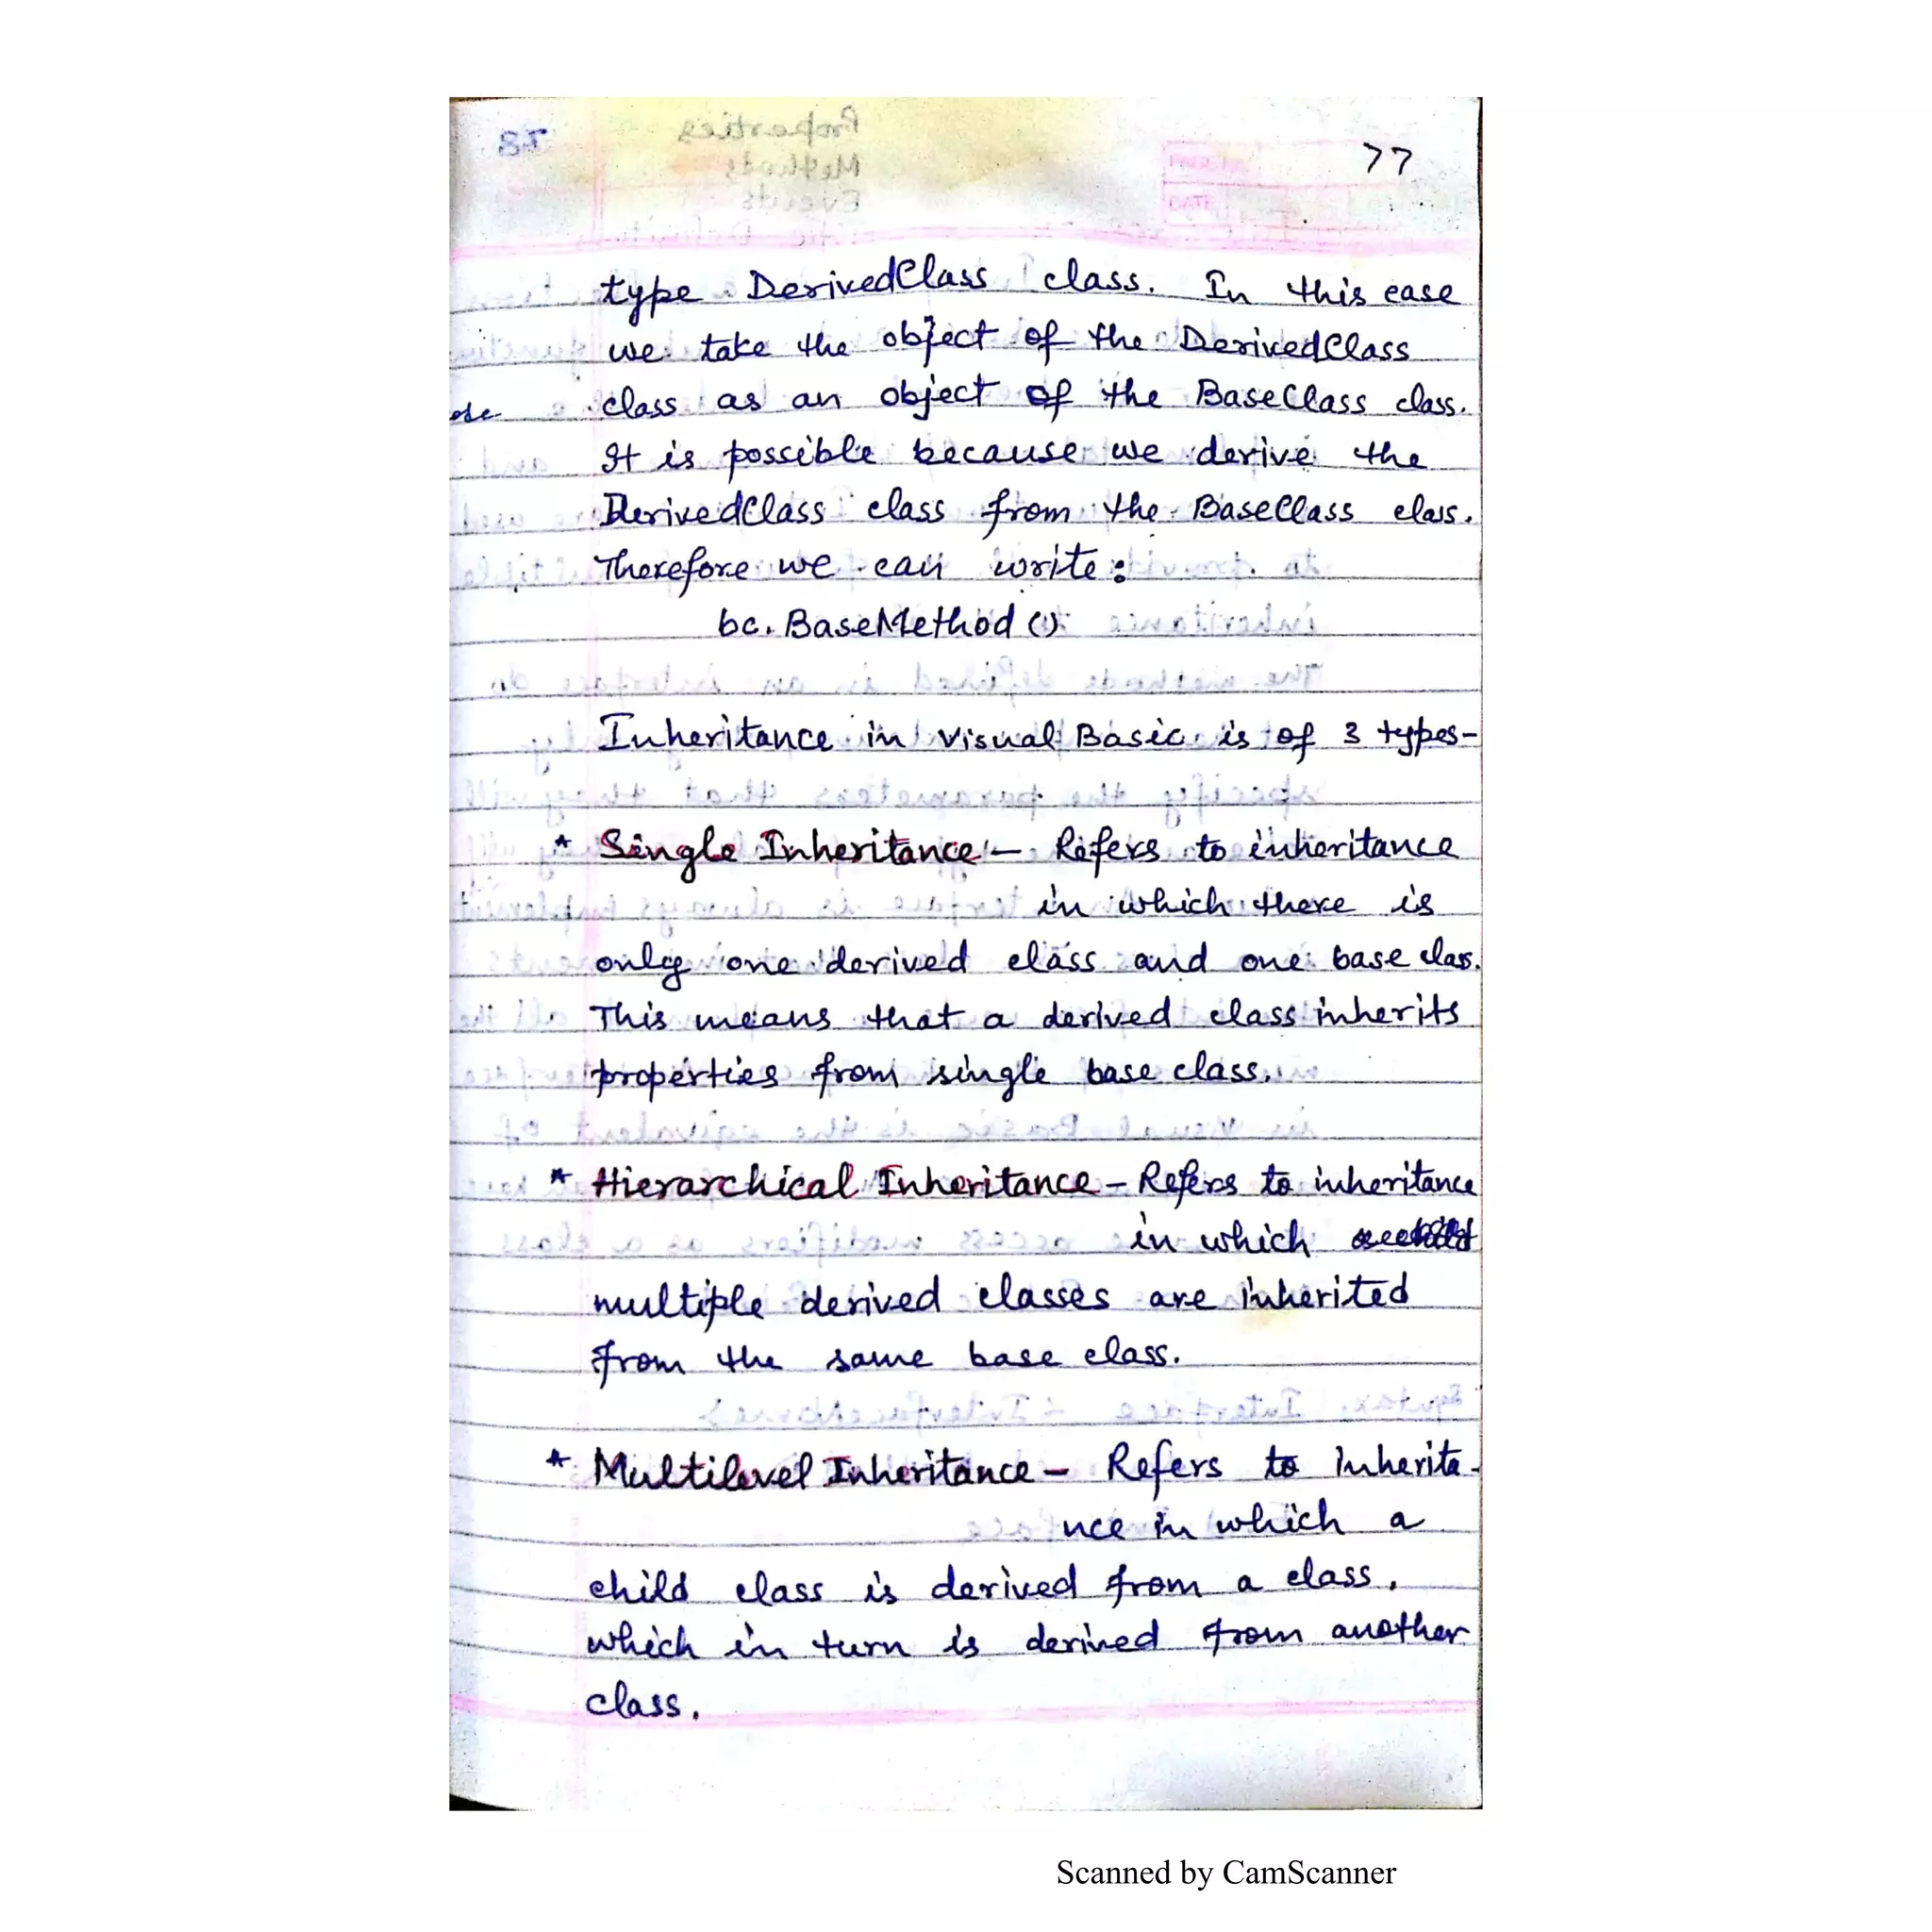 77
type DerivedClass class. In this case
we take the object of the DerivedClass
class as an object of the BaseClass class.
It is possible because we derive the
DerivedClass class from the BaseClass class.
Therefore we can write:
bc. BaseMethod ()
Inheritance in Visual Basic is of 3 types-
* Single Inheritance - Refers to inheritance
in which there is
only one derived class and one base class.
This means that a derived class inherits
properties from single base class.
* Hierarchical Inheritance - Refers to inheritance
in which
multiple derived classes are inherited
from the same base class.
* Multilevel Inheritance - Refers to inherita-
nce in which a
child class is derived from a class,
which in turn is derived from another
class.
Scanned by CamScanner